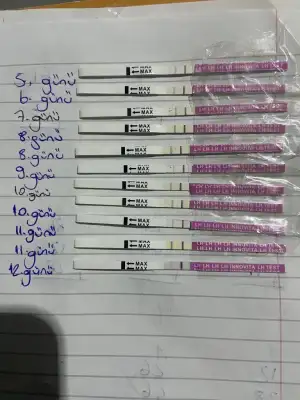 5. günü ←MAX ←MAX LH LH LH LH INNOVITA LH TEST
6. günü ←MAX ←MAX
7. günü ←MAX ←MAX
8. günü ←MAX ←MAX
8. günü ←MAX ←MAX
9. günü ←MAX ←MAX
10. günü ←MAX ←MAX
10. günü ←MAX ←MAX
11. günü ←MAX ←MAX LH LH LH LH INNOVITA LH TEST
11. günü ←MAX ←MAX LH LH LH LH INNOVITA LH TEST
12. günü ←MAX ←MAX LH LH LH LH INNOVITA LH TEST